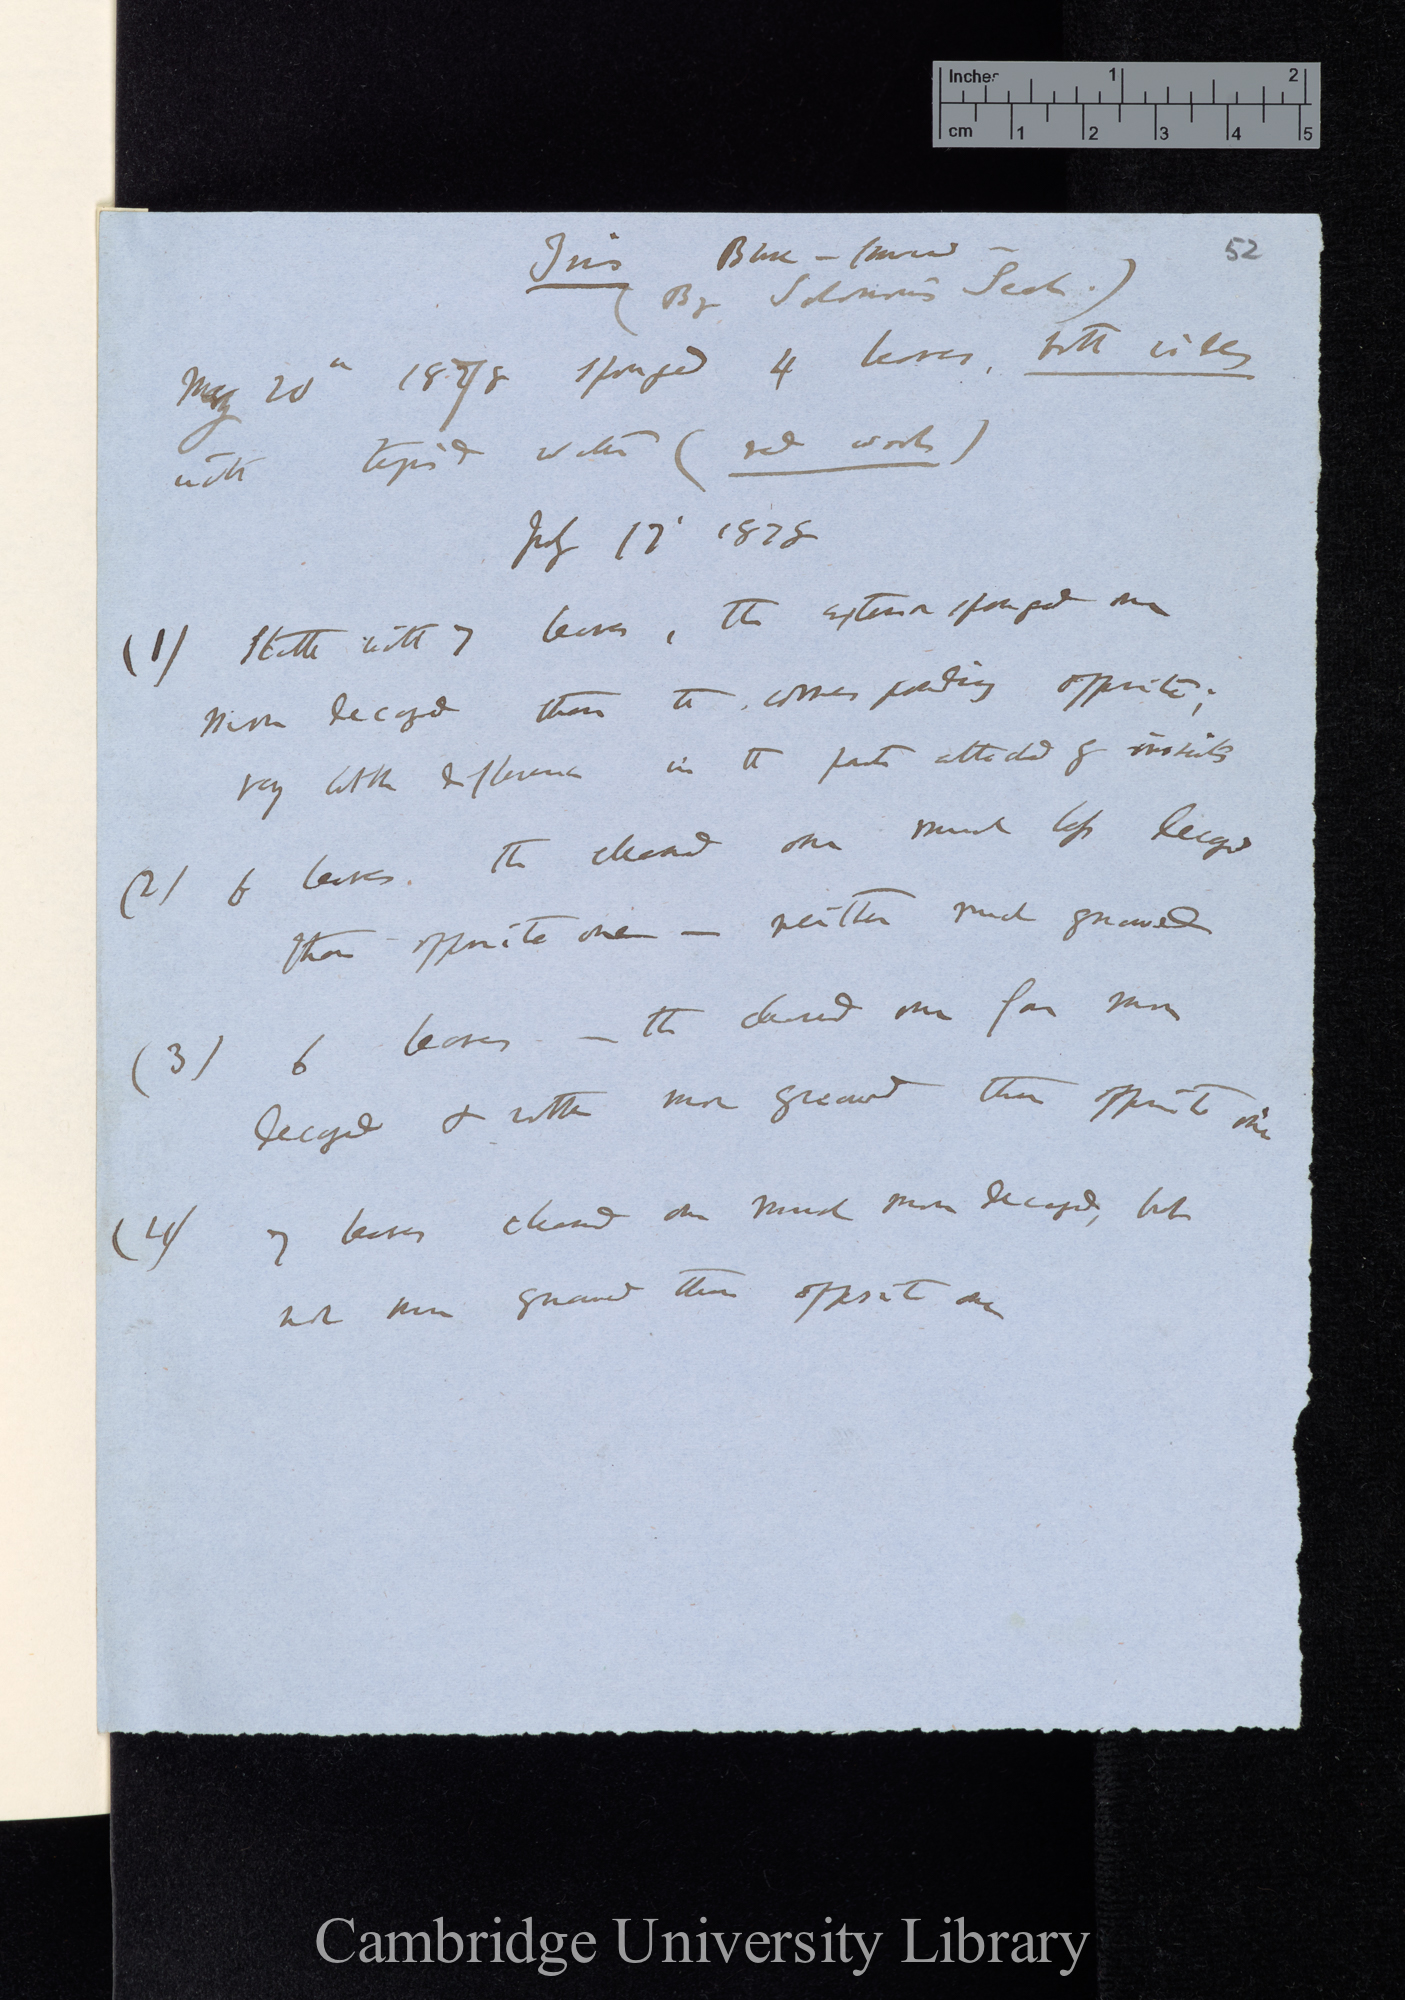 Inches 1 2
cm 1 2 3 4 5
52
Iris Blue-flowered –
(By Solomon's Seal.)
May 20th 1878 sponged 4 leaves, both sides
with tepid water (red wool)
July 17' 1878
(1) with 7 leaves, the exterior sponged one
more decayed than the corresponding opposite;
very little difference in the parts attacked by insects
(2) 6 leaves. The cleaned one much less decayed
than opposite one — neither much gnawed
(3) 6 leaves – the cleaned one far more
decayed & rather more gnawed than opposite one
(4) 7 leaves cleaned one much more decayed, but
not more gnawed than opposite one
Cambridge University Library